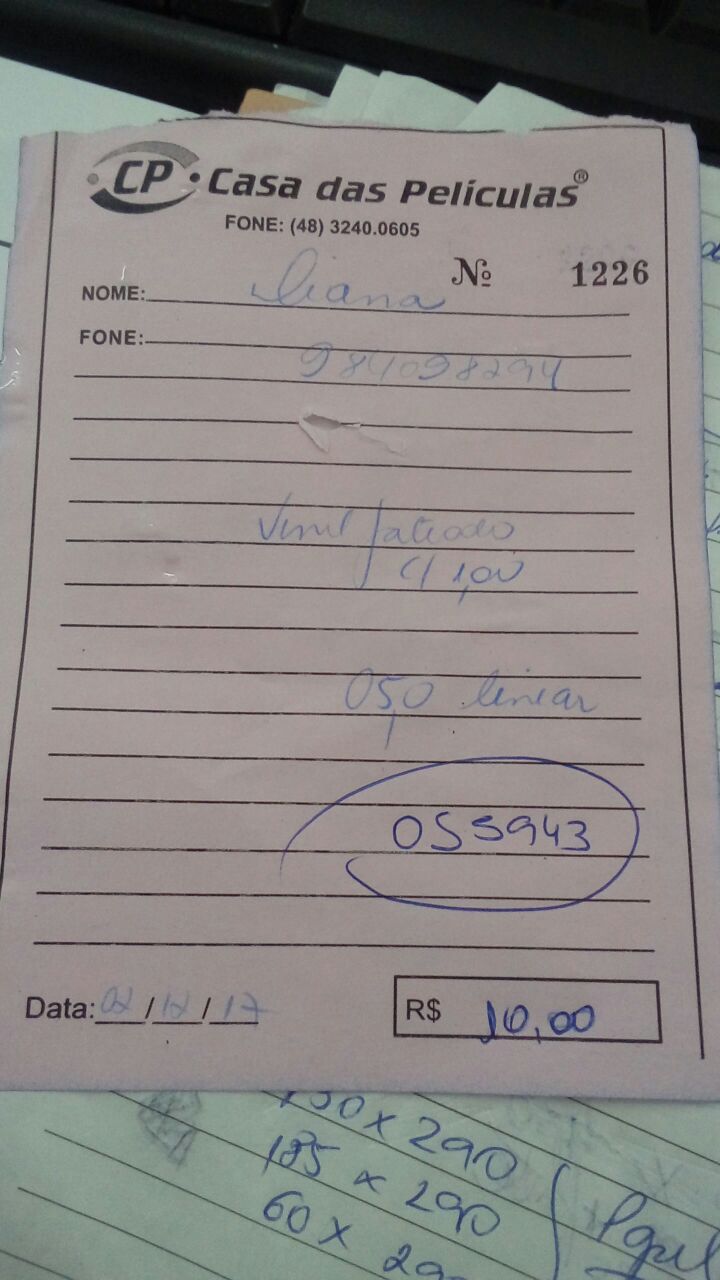 CP Casa das Películas®
FONE: (48) 3240.0605
Nº 1226
NOME: Diana
FONE:
984098294
Vinil jateado
c/ 1,00
0,50 linear
055943
Data: 02/12/17
R$ 10,00
130 x 290
185 x 290
60 x 290